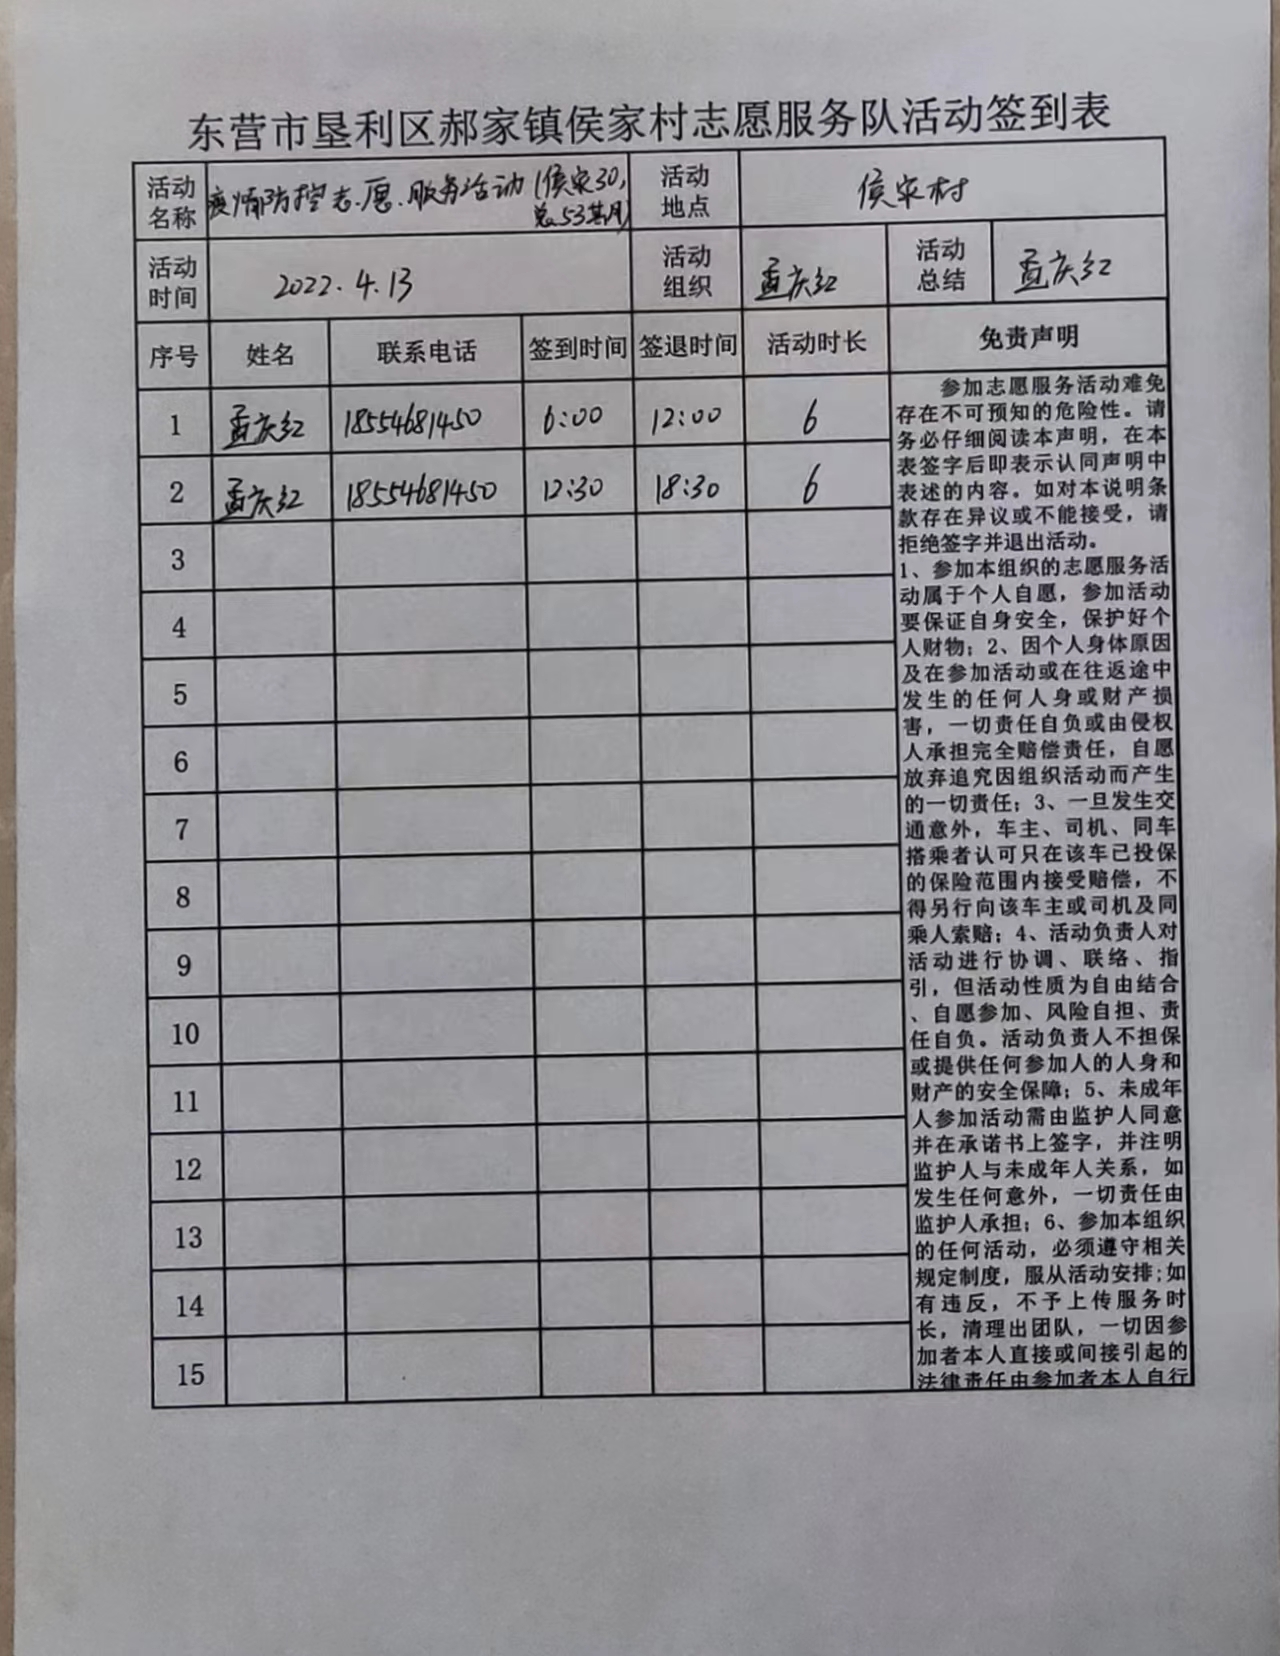 东营市垦利区郝家镇侯家村志愿服务队活动签到表
活动名称 疫情防控志愿服务活动(侯家30, 活动地点 侯家村
总53其月)
活动时间 2022.4.13 活动组织 孟庆红 活动总结 孟庆红
序号 姓名 联系电话 签到时间 签退时间 活动时长 免责声明
1 孟庆红 18554681450 6:00 12:00 6
2 孟庆红 18554681450 12:30 18:30 6
3
4
5
6
7
8
9
10
11
12
13
14
15
参加志愿服务活动难免
存在不可预知的危险性。请
务必仔细阅读本声明，在本
表签字后即表示认同声明中
表述的内容。如对本说明条
款存在异议或不能接受，请
拒绝签字并退出活动。
1、参加本组织的志愿服务活
动属于个人自愿，参加活动
要保证自身安全，保护好个
人财物；2、因个人身体原因
及在参加活动或在往返途中
发生的任何人身或财产损
害，一切责任自负或由侵权
人承担完全赔偿责任，自愿
放弃追究因组织活动而产生
的一切责任；3、一旦发生交
通意外，车主、司机、同车
搭乘者认可只在该车已投保
的保险范围内接受赔偿，不
得另行向该车主或司机及同
乘人索赔；4、活动负责人对
活动进行协调、联络、指
引，但活动性质为自由结合
、自愿参加、风险自担、责
任自负。活动负责人不担保
或提供任何参加人的人身和
财产的安全保障；5、未成年
人参加活动需由监护人同意
并在承诺书上签字，并注明
监护人与未成年人关系，如
发生任何意外，一切责任由
监护人承担；6、参加本组织
的任何活动，必须遵守相关
规定制度，服从活动安排;如
有违反，不予上传服务时
长，清理出团队，一切因参
加者本人直接或间接引起的
法律责任由参加者本人自行